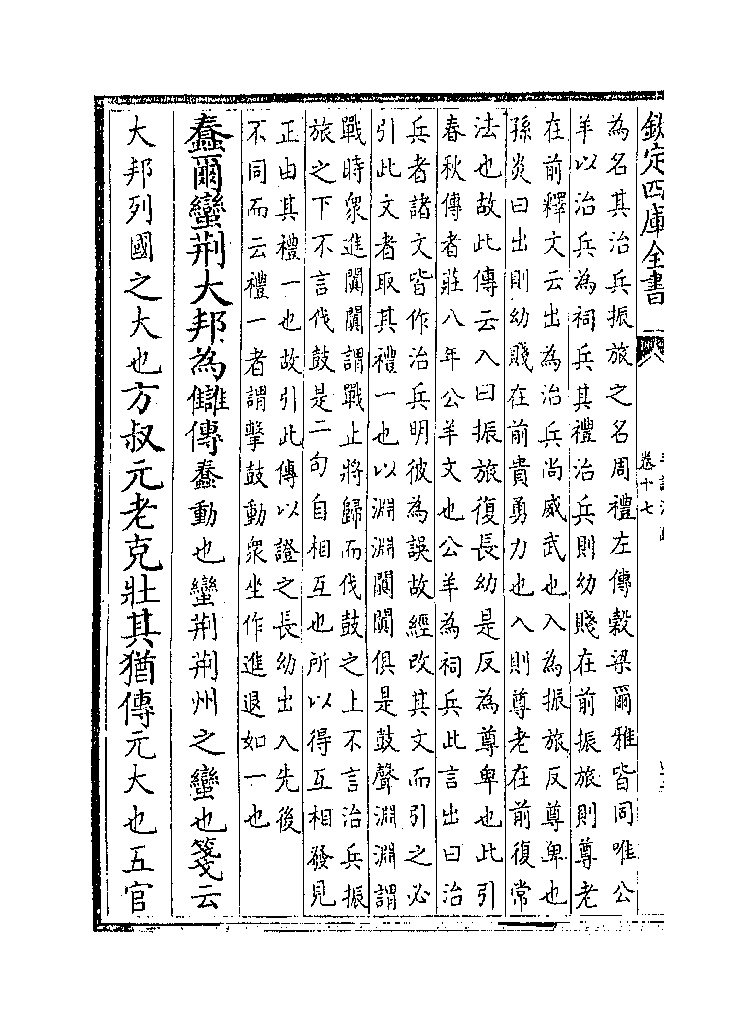 欽定四庫全書
卷十七
為名其治兵振旅之名周禮左傳穀梁爾雅皆同唯公
羊以治兵為祠兵其禮治兵則幼賤在前振旅則尊老
在前釋文云出為治兵尚威武也入為振旅反尊卑也
孫炎曰出則幼賤在前貴勇力也入則尊老在前復常
法也故此傳云入曰振旅復長幼是反為尊卑也此引
春秋傳者莊八年公羊文也公羊為祠兵此言出曰治
兵者諸文皆作治兵明彼為誤故經改其文而引之必
引此文者取其禮一也以淵淵闐闐俱是鼓聲淵淵謂
戰時衆進闐闐謂戰止將歸而伐鼓之上不言治兵振
旅之下不言伐鼓是二句自相互也所以得互相發見
正由其禮一也故引此傳以證之長幼出入先後
不同而云禮一者謂擊鼓動衆坐作進退如一也
蠢爾蠻荆大邦為讎傳蠢動也蠻荆荆州之蠻也箋云
大邦列國之大也方叔元老克壯其猶傳元大也五官